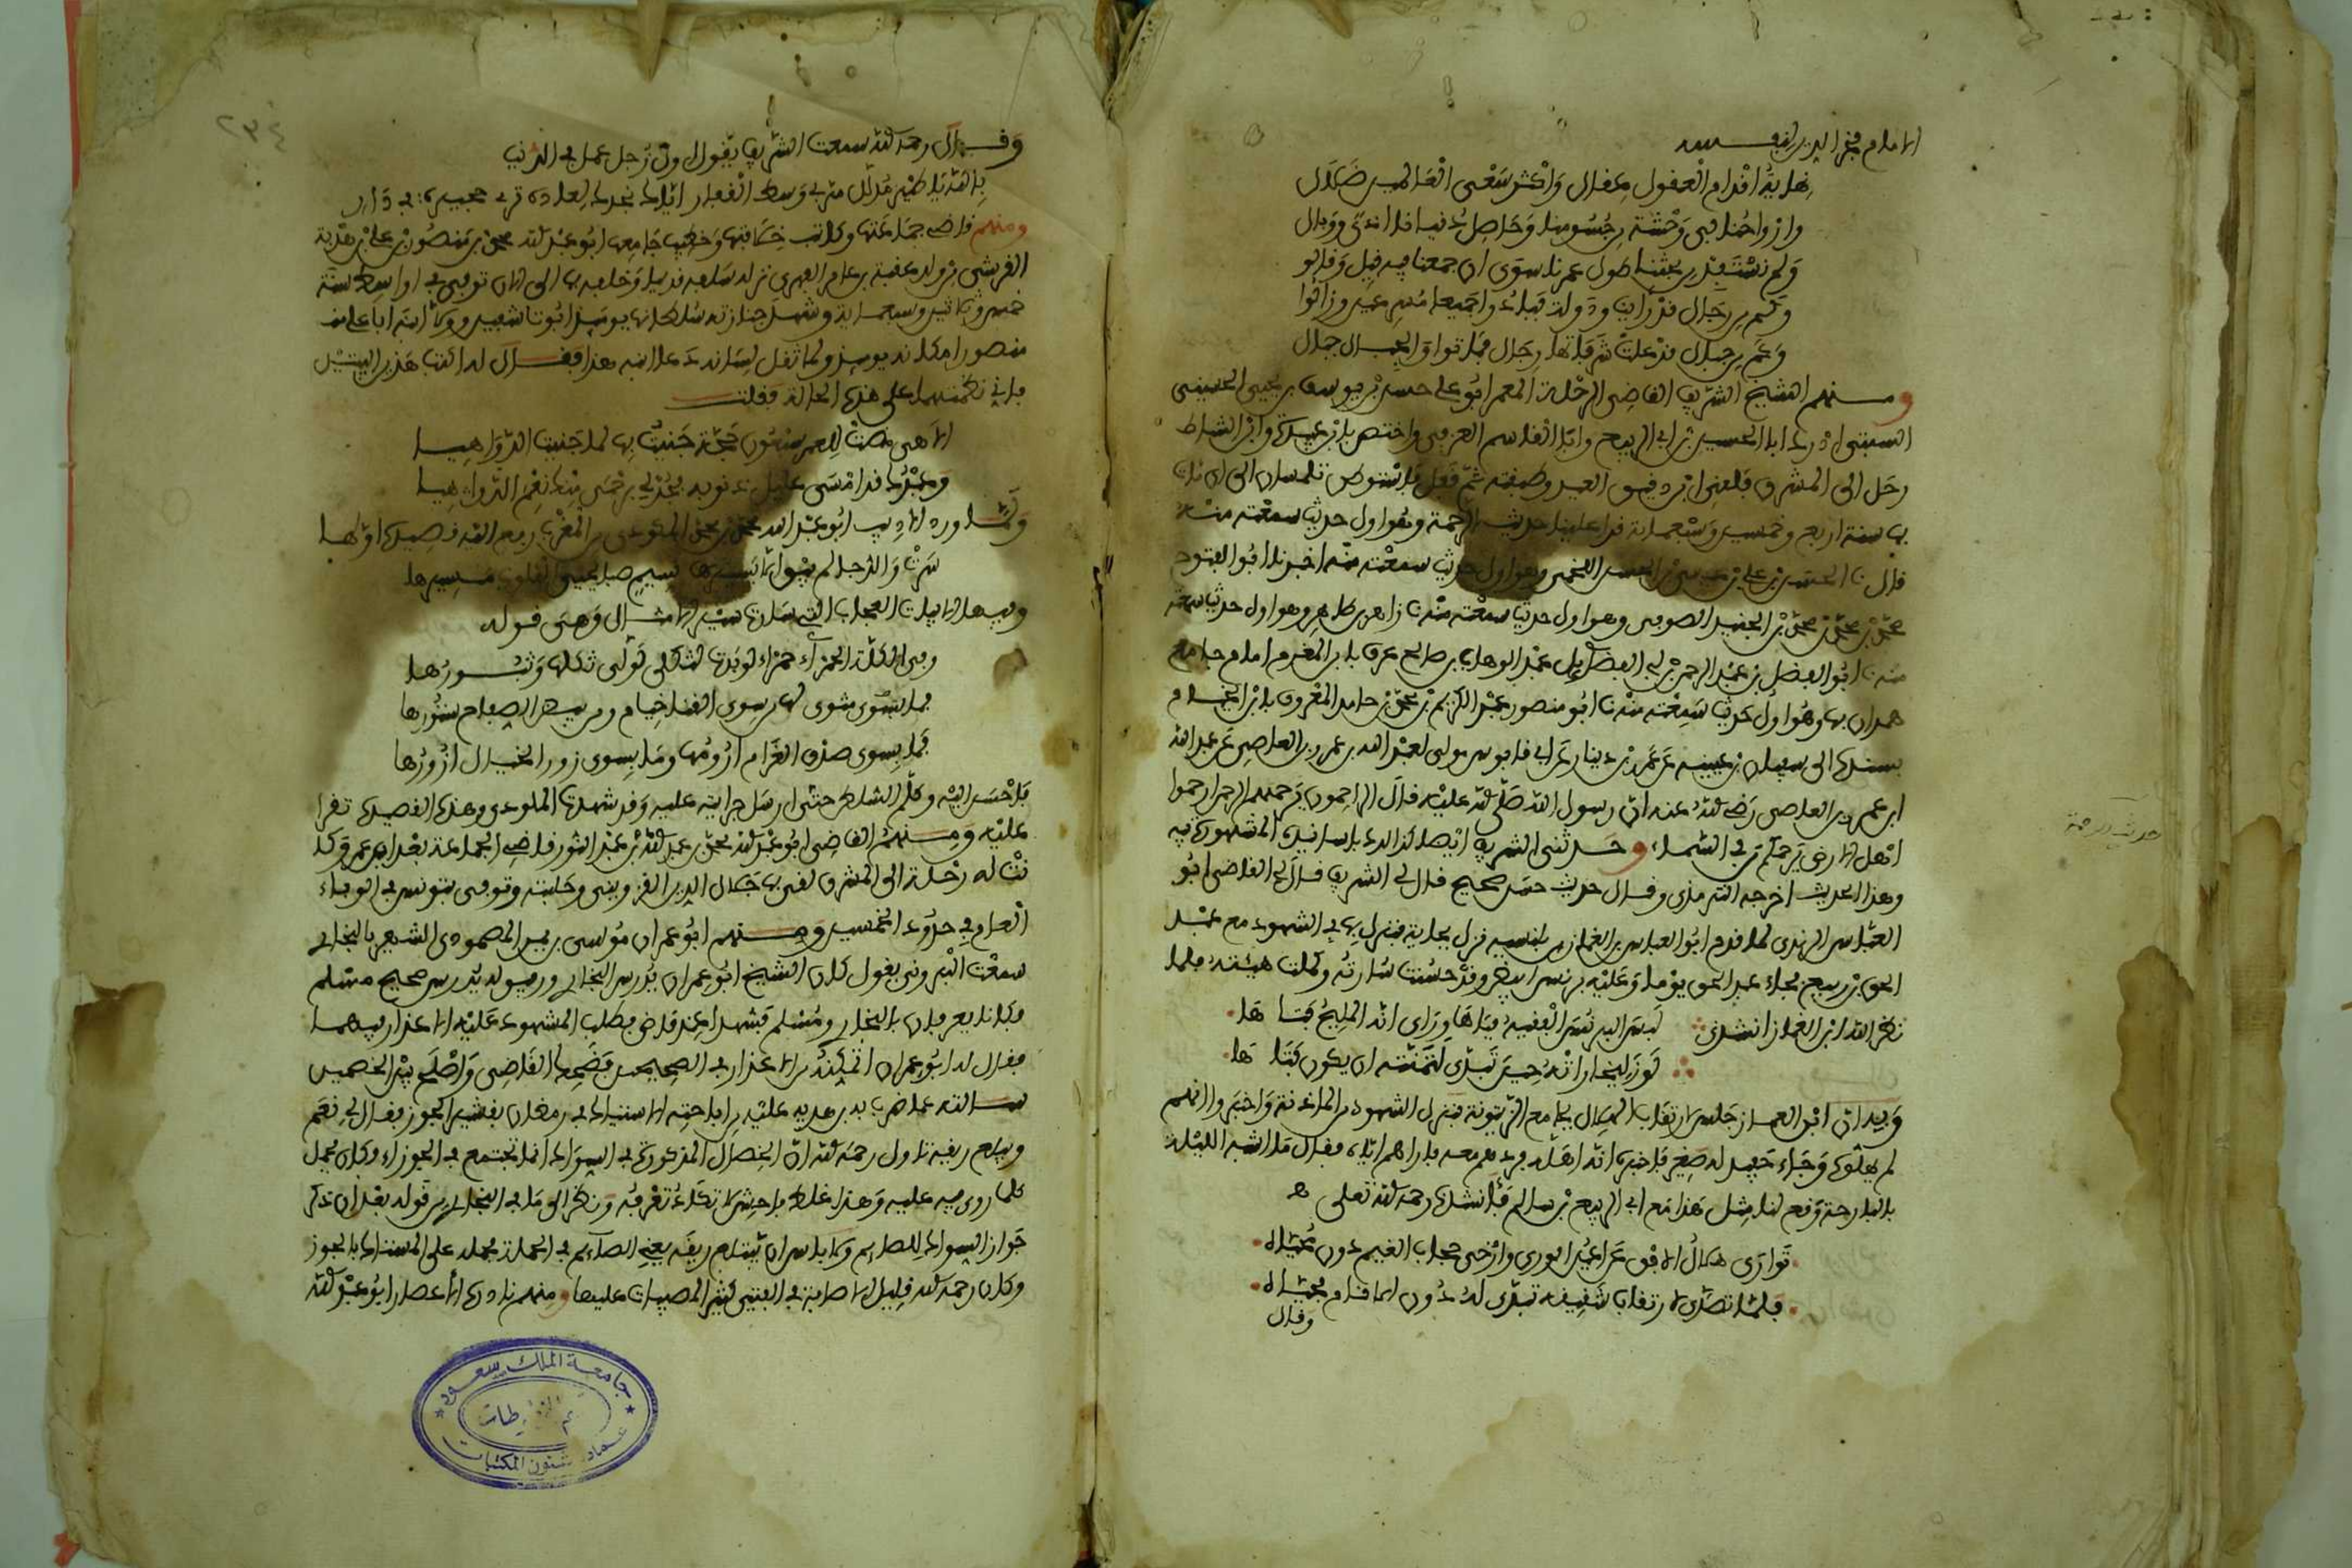 الامام فخر الدين لنفسه
نهاية اقدام العقول عقال واكثر سعي العالمين ضلال
وارواحنا في وحشة من جسومنا وحاصل دنيانا اذى ووبال
ولم نستفد من بحثنا طول عمرنا سوى ان جمعنا فيه قيل وقالوا
وكم من رجال قد راينا ودولة فبادوا جميعا مسرعين وزالوا
وكم من جبال قد علت شرفاتها رجال فماتوا والجبال جبال
ومنهم الشيخ الشريف القاضي الرحلة المعمر ابو علي حسن بن يوسف بن يحيى الحسيني
السبتي ادرك ابا الحسين بن ابي الربيع وابا القاسم العزفي واختص بابن عبيدة وابن الشاط
رحل الى المشرق فلقي ابن دقيق العيد وطبقته ثم قفل فاستوطن تلمسان الى ان مات
بها سنة اربع وخمسين وسبعماية قرا علينا حديث الرحمة وهو اول حديث سمعته منه
قال نا الحسن بن علي بن عيسى بن الحسن اللخمي وهو اول حديث سمعته منه اخبرنا ابو الفتوح
محمد بن محمد بن محمد بن الجنيد الصوفي وهو اول حديث سمعته منه نا زاهر بن طاهر وهو اول حديث سمعته
منه نا ابو الفضل بن عبد الرحمن بن ابي الفضل عبد الوهاب بن صالح عرف بابن المغرم امام جامع
همدان بها وهو اول حديث سمعته منه نا ابو منصور عبد الكريم بن محمد بن حامد المعروف بابن الخيام
بسنده الى سفيان بن عيينة عن عمرو بن دينار عن ابي قابوس مولى لعبد الله بن عمرو بن العاصي عن عبد الله
ابن عمرو بن العاصي رضي الله عنه ان رسول الله صلى الله عليه قال الراحمون يرحمهم الرحمن ارحموا
اهل الارض يرحمكم من في السماء وحدثني الشريف ايضا كذلك باسانيده المشهورة فيه
حديث الرحمة
وهذا الحديث اخرجه الترمذي وقال حديث حسن صحيح قال لي الشريف قال لي القاضي ابو
العباس الرندي لما قدم ابو العباس بن الغماز من بلنسية نزل بجاية فنزل بها في الشهود مع عبد
الحق بن ربيع فجاء عبد الحق يوما وعليه برنس ابيض وقد حسنت شارته وكملت هيئته فلما
نظر الله ابن الغماز انشده لبس البرنس الفقيه فباها وراى انه المليح فتاها
لو زليخا راته حين تبدى لتمنته ان يكون فتاها
وفيه ان ابن الغماز جلس لارتقاب الهلال بجامع الزيتونة فنزل الشهود من المئذنة واخبروا انهم
لم يهلوه وجاء حفيد له صغير فاخبره انه اهله فردهم معه فاراهم اياه فقال ما اشبه الليلة
بالبارحة وقع لنا مثل هذا مع ابي الربيع بن سالم فانشدنا رحمه الله تعالى
توارى هلال الافق عن اعين الورى وارخى حجاب الغيم دون محياه
فلما تصدى لارتقاب شقيقه تبدى له دون الانام فحياه
وقال
٢٣٤
وقال رحمه الله سمعت الشريف يقول اول زجل عمل في الدنيا
بالله يا طير مدلل مر بي وسط القفار اياك نجدد العادة ترمي حجيرة في داري
ومنهم قاضي جماعتها وكاتب خلافتها وخطيب جامعها ابو عبد الله محمد بن منصور بن علي بن هدية
القرشي من ولد عقبة بن عامر الفهري نزل سلفه قديما وخلفه بها الى الان توفي في اواسط سنة
خمس وثلاثين وسبعماية وشهد جنازته سلطانها يومئذ ابو تاشفين وولى ابنه ابا علي
منصورا مكانه يومئذ ولما ثقل لسانه دعا ابنه هذا فقال له اكتب هذين البيتين
فاني نظمتهما على هذه الحالة فكتب
الاهي مضت للعمر سبعون حجة جنيت بها لما جنيت الدواهيا
وعبدك قد امسى عليل ذنوبه فجد لي برحمى منك نعم الدوا هيا
ولما ورد الاديب ابو عبد الله محمد بن محمد المكودي من المغرب رفع اليه قصيدة اولها
سرت والدجى لم يبق الا يسيرها نسيم صبا يحيي القلوب مسيرها
وفيها الابيات العجاب التي سارت سير الامثال وهي قوله
وفي الكلة الحمراء حمراء لو بدت لثكلى لولى ثكلها وثبورها
فما يستوي مثوى لها من سوى القنا خيام ومن بيض الصفاح ستورها
فما بسوى صدق الغرام ارومها وما بسوى زور الخيال ازورها
فاحسن اليه وكلم السلطان حتى ارسل جرايته عليه وقد شهدت المكودي وهذه القصيدة تقرا
عليه ومنهم القاضي ابو عبد الله محمد بن عبد الله بن عبد النور قاضي الجماعة بعد ابن عمر وكا
نت له رحلة الى المشرق لقي بها جلال الدين القزويني وحليته وتوفي بتونس في الوباء
العام في حدود الخمسين ومنهم ابو عمران موسى بن يمن المصمودي الشهير بالبخاري
سمعت البروني يقول كان الشيخ ابو عمران يدرس البخاري ورفيق له يدرس صحيح مسلم
فكانا يعرفان بالبخاري ومسلم فشهدا عند قاض فطلب المشهود عليه الاعذار فيهما
فقال له ابو عمران اتمكنه من الاعذار في الصحيحين فضحك القاضي واصلح بين الخصمين
سالته عما ضرب ابن هدية عليه من اباحته الاستياك في رمضان بقشر الجوز فقال لي نعم
ويبلع ريقه تاول رحمه الله ان الخصال المذكورة في السواك انما تجتمع في الجوزاء وكان يحمل
كلما روي فيه عليه وهذا غلط فاحش لا تكاد تعرفه ونظر الى ما في البخاري من قوله بعد ان ذكر
جواز السواك للصائم ولا باس ان يبتلع ريقه يعني الصائم في الجملة فحمله على المستاك بالجوز
وكان رحمه الله قليل الاصابة في الفتيا كثير المصيبات عليها ومنهم نادرة الاعصار ابو عبد الله
جامعة الملك سعود
قسم المخطوطات
عمادة شئون المكتبات